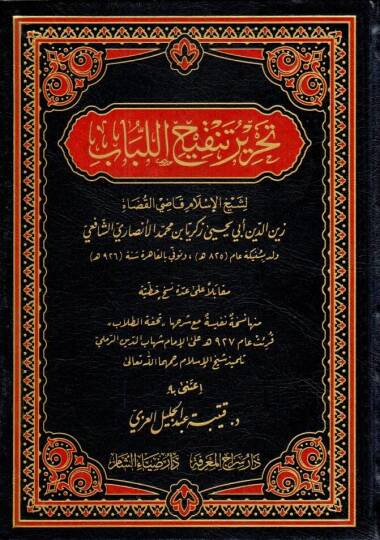 تحرير تنقيح اللباب
لشيخ الإسلام قاضي القضاة
زين الدين أبي يحيى زكريا بن محمد الأنصاري الشافعي
ولد بسُنيكة عام (٨٢٥ هـ) ، وتوفي بالقاهرة سنة (٩٢٦ هـ)
مقابلاً على عدة نسخ خطية
منها نسخة نفيسة مع شرحها «تحفة الطلاب»
قُرئت عام ٩٢٧ هـ على الإمام شهاب الدين الرملي
تلميذ شيخ الإسلام رحمهما الله تعالى
اعتنى به
د. قتيبة عبد الجليل العزي
دار سراج المعرفة دار ضياء الشام